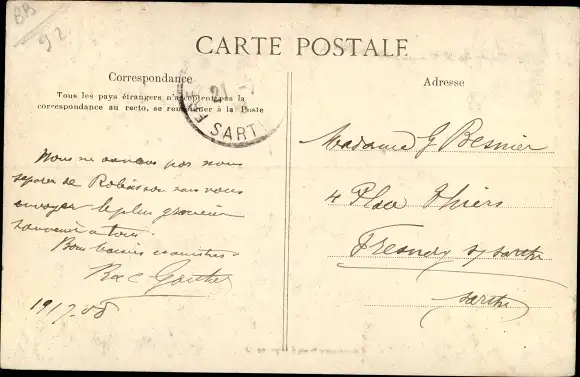 BB
92
CARTE POSTALE
Correspondance
Tous les pays étrangers n'acceptent pas la
correspondance au recto, se renseigner à la Poste
21
SARTHE
Nous ne pas nous
séparer de Robinson sans vous
envoyer le plus gracieux
souvenir à tous.
Bons baisers
R & C Gautier
19.7.08
Adresse
Madame G Besnier
4 Place Thiers
Fresnay s/ Sarthe
Sarthe